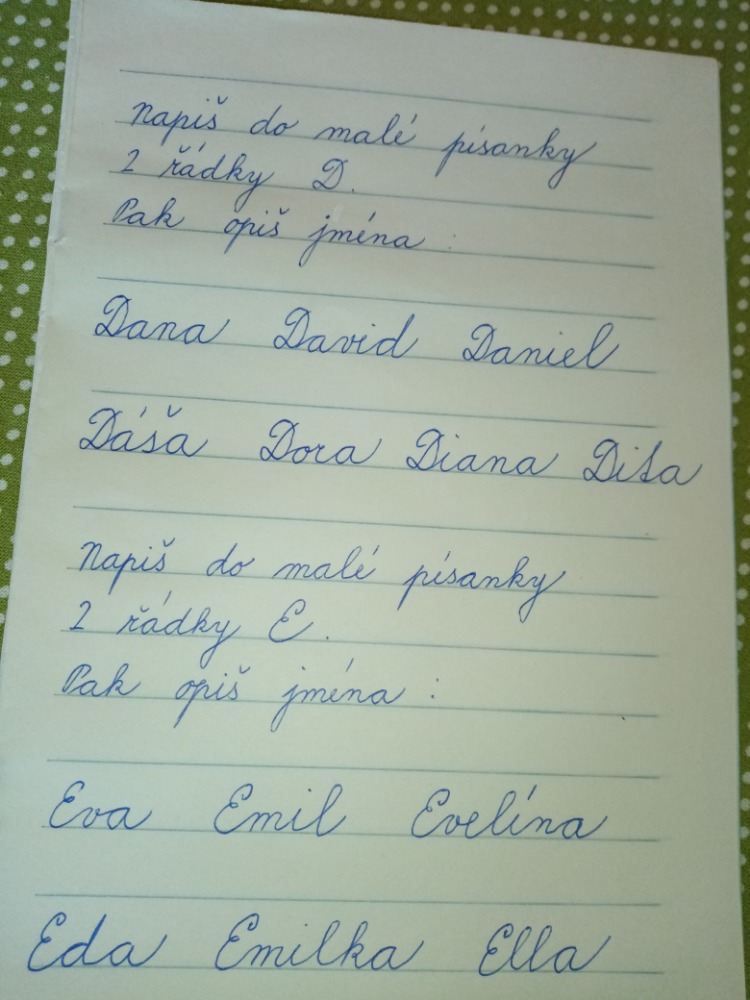 Napiš do malé písanky
2 řádky D.
Pak opiš jména :
Dana David Daniel
Dáša Dora Diana Dita
Napiš do malé písanky
2 řádky E.
Pak opiš jména :
Eva Emil Evelína
Eda Emilka Ella